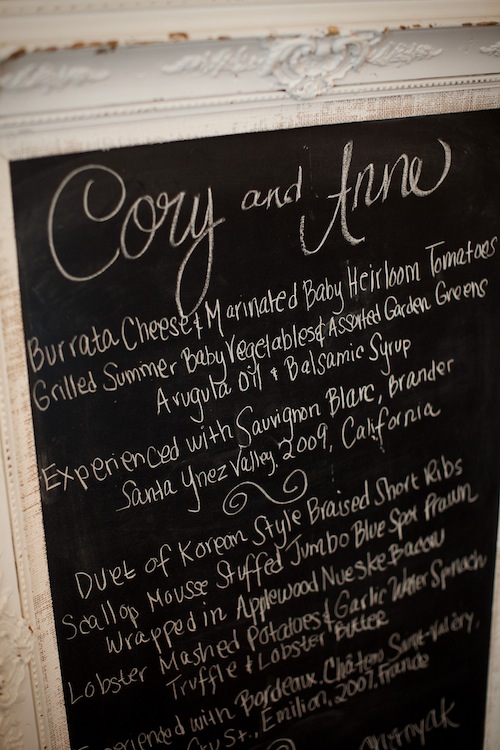 Cory and Anne
Burrata Cheese & Marinated Baby Heirloom Tomatoes
Grilled Summer Baby Vegetables & Assorted Garden Greens
Arugula Oil & Balsamic Syrup
Experienced with Sauvignon Blanc, Brander
Santa Ynez Valley, 2009, California
Duet of Korean Style Braised Short Ribs
Scallop Mousse Stuffed Jumbo Blue Spot Prawn
Wrapped in Applewood Nueske Bacon
Lobster Mashed Potatoes & Garlic Water Spinach
Truffle & Lobster Butter
Experienced with Bordeaux. Château Saint-Valery,
St., Emilion, 2007, France